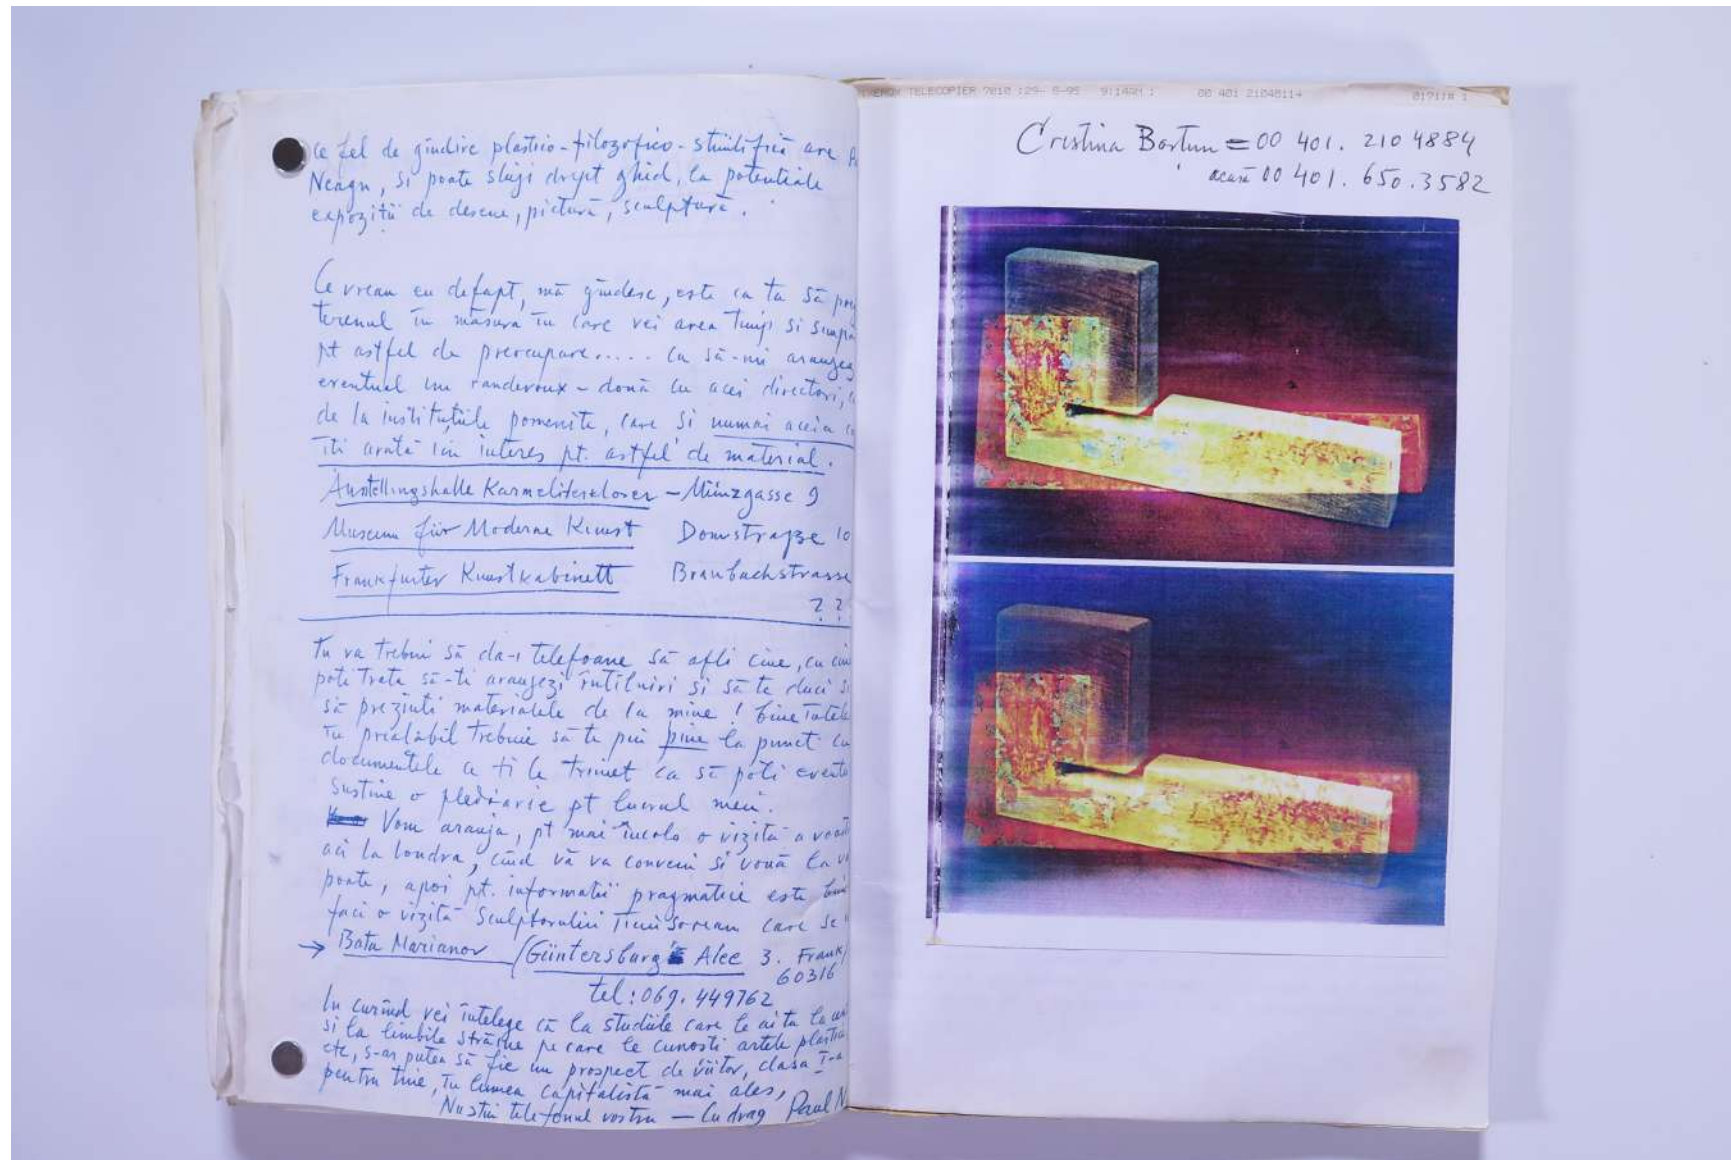 ce fel de gîndire plastico-filozofico-stiintifică are
Neagu, si poate sluji drept ghid, la potentiale
expoziții de desene, pictură, sculptură.
Ce vreau eu defapt, mă gîndesc, este ca tu să
terenul în măsura în care vei avea timp si
pt astfel de preocupare..... Ca să-mi aranjez
eventual un randevoux - două cu acei directori,
de la instituțiile pomenite, care si numai aceia
iti arată interes pt. astfel de material.
Austellingshalle Karmeliterkloser - Münzgasse 9
Museum für Moderne Kunst Domstraße 10
Frankfurter Kunstkabinett Braubachstrasse
? ?
Tu va trebui să da-i telefoane să afli cine, cu
poti trata să-ti aranjezi întîlniri si să te duci
să prezinti materialele de la mine! bine
în prealabil trebuie să te pui bine la punct cu
documentele ce ti le trimet ca să poti
sustine o pledoarie pt lucrul meu.
Vom aranja, pt mai încolo o vizită a
aci la Londra, cînd vă va conveni si vouă
poate, apoi pt. informatii pragmatice este
faci o vizită sculptorului Timisorean care se
→ Bata Marianov /Güntersburg Alee 3. Frank/
60316
tel: 069. 449762
In curînd vei întelege că la studiile care le ai tu
si la limbile străine pe care le cunosti artele
etc, s-ar putea să fie un prospect de viitor, clasa I-a
pentru tine, în lumea capitalistă mai ales,
Nu stiu telefonul vostru - Cu drag Paul N
XEROX TELECOPIER 7010 :29- 8-95 9:14AM ; 00 401 2104811→ 0171:# 1
Cristina Bortun = 00 401. 210 4884
acasă 00 401. 650.3582